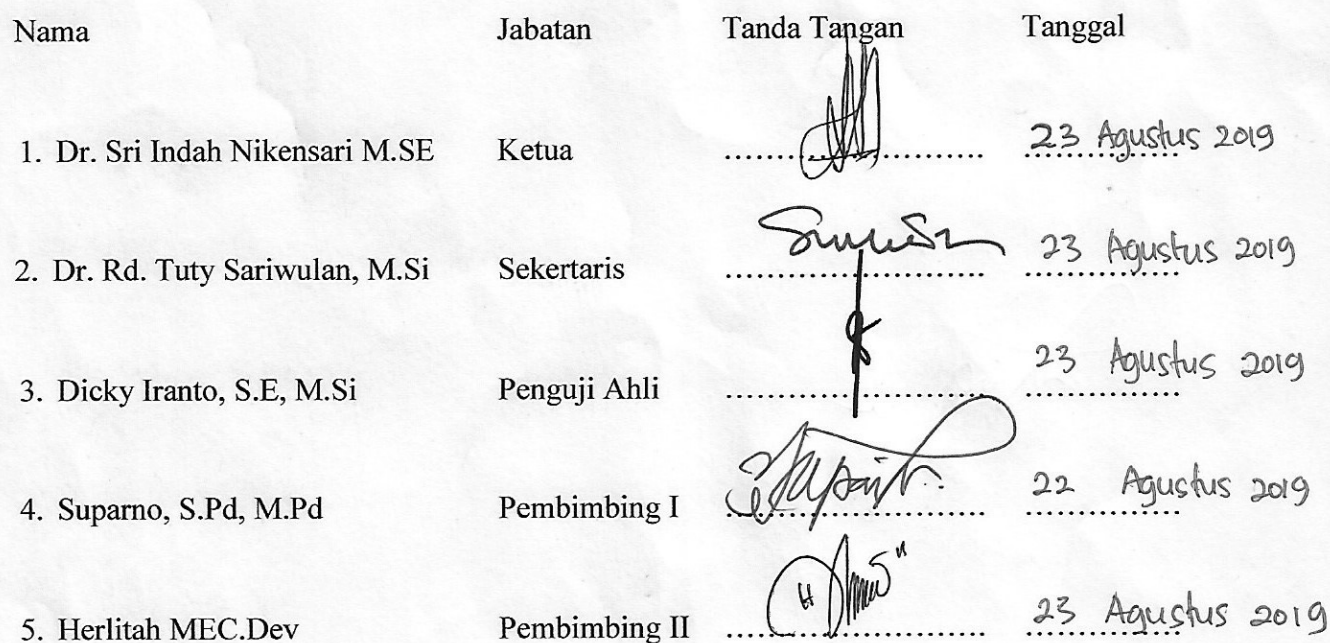 Nama Jabatan Tanda Tangan Tanggal
1. Dr. Sri Indah Nikensari M.SE Ketua ........................ 23 Agustus 2019
2. Dr. Rd. Tuty Sariwulan, M.Si Sekertaris ........................ 23 Agustus 2019
3. Dicky Iranto, S.E, M.Si Penguji Ahli ........................ 23 Agustus 2019
4. Suparno, S.Pd, M.Pd Pembimbing I ........................ 22 Agustus 2019
5. Herlitah MEC.Dev Pembimbing II ........................ 23 Agustus 2019